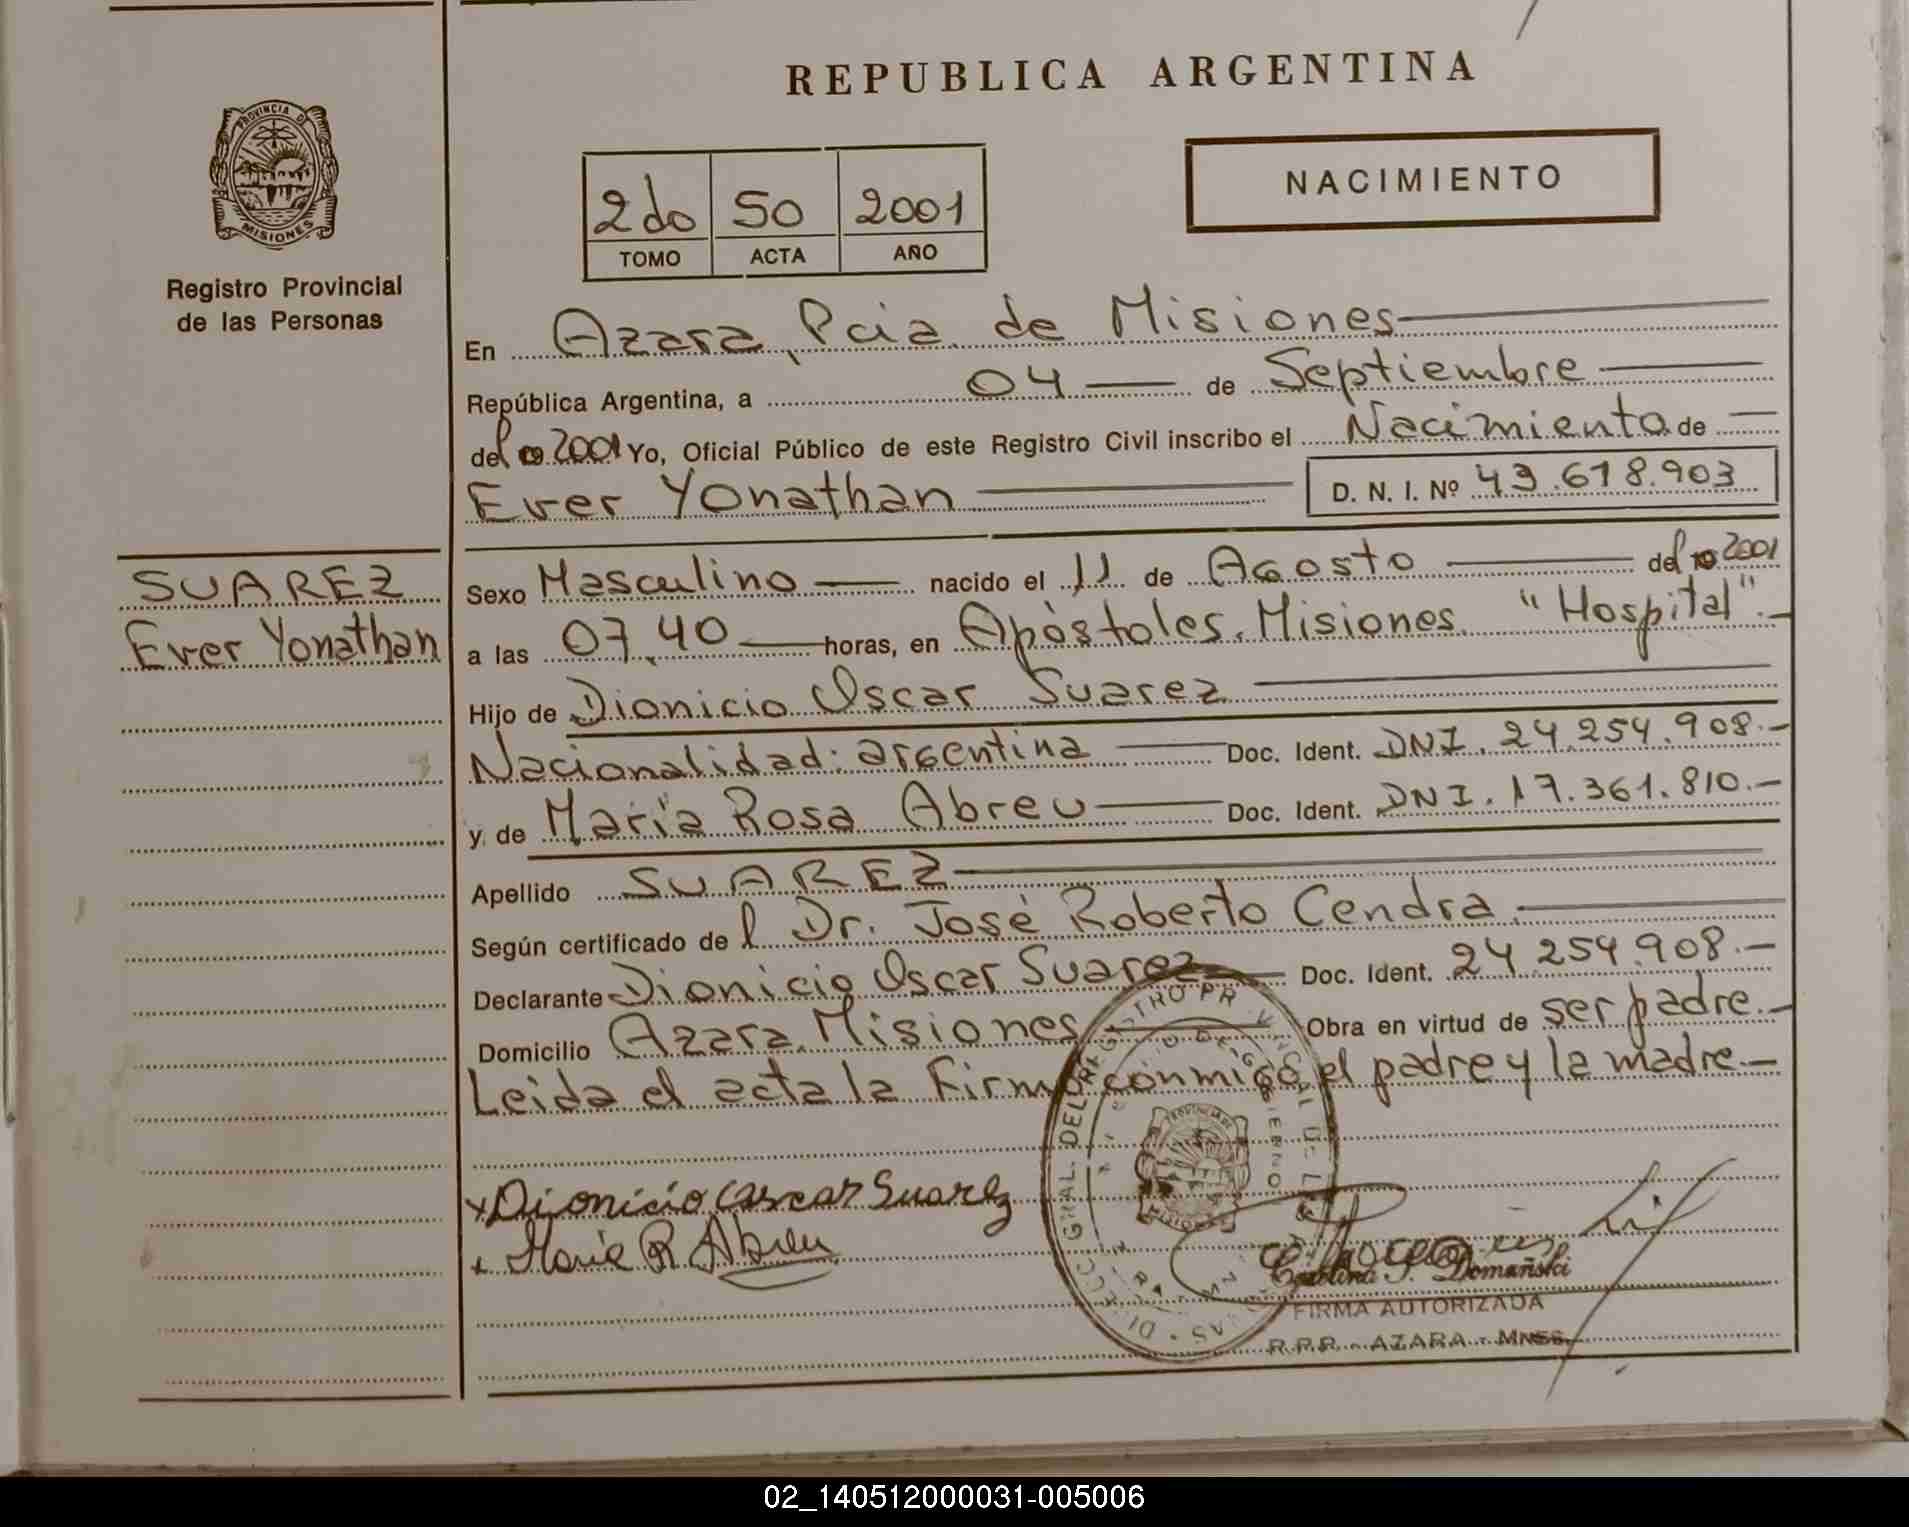 REPUBLICA ARGENTINA
PROVINCIA DE
MISIONES
Registro Provincial
de las Personas
2do 50 2001
TOMO ACTA AÑO
NACIMIENTO
En Azara, Pcia. de Misiones
República Argentina, a 04 de Septiembre
del 2001 Yo, Oficial Público de este Registro Civil inscribo el Nacimiento de
Ever Yonathan D. N. I. Nº 43.618.903
SUAREZ
Ever Yonathan
Sexo Masculino nacido el 11 de Agosto del 2001
a las 07,40 horas, en Apóstoles. Misiones. "Hospital".-
Hijo de Dionicio Oscar Suarez
Nacionalidad: argentina Doc. Ident. DNI. 24.254.908.-
y de María Rosa Abreu Doc. Ident. DNI. 17.361.810.-
Apellido SUAREZ
Según certificado del Dr. José Roberto Cendra.
Declarante Dionicio Oscar Suarez Doc. Ident. 24 254.908.-
Domicilio Azara. Misiones Obra en virtud de ser padre.-
Leida el acta la Firma conmigo el padre y la madre.-
x Dionicio Oscar Suarez
x Maria R Abreu
Carolina Domański
FIRMA AUTORIZADA
R.P.P. - AZARA - MNES.
02_140512000031-005006